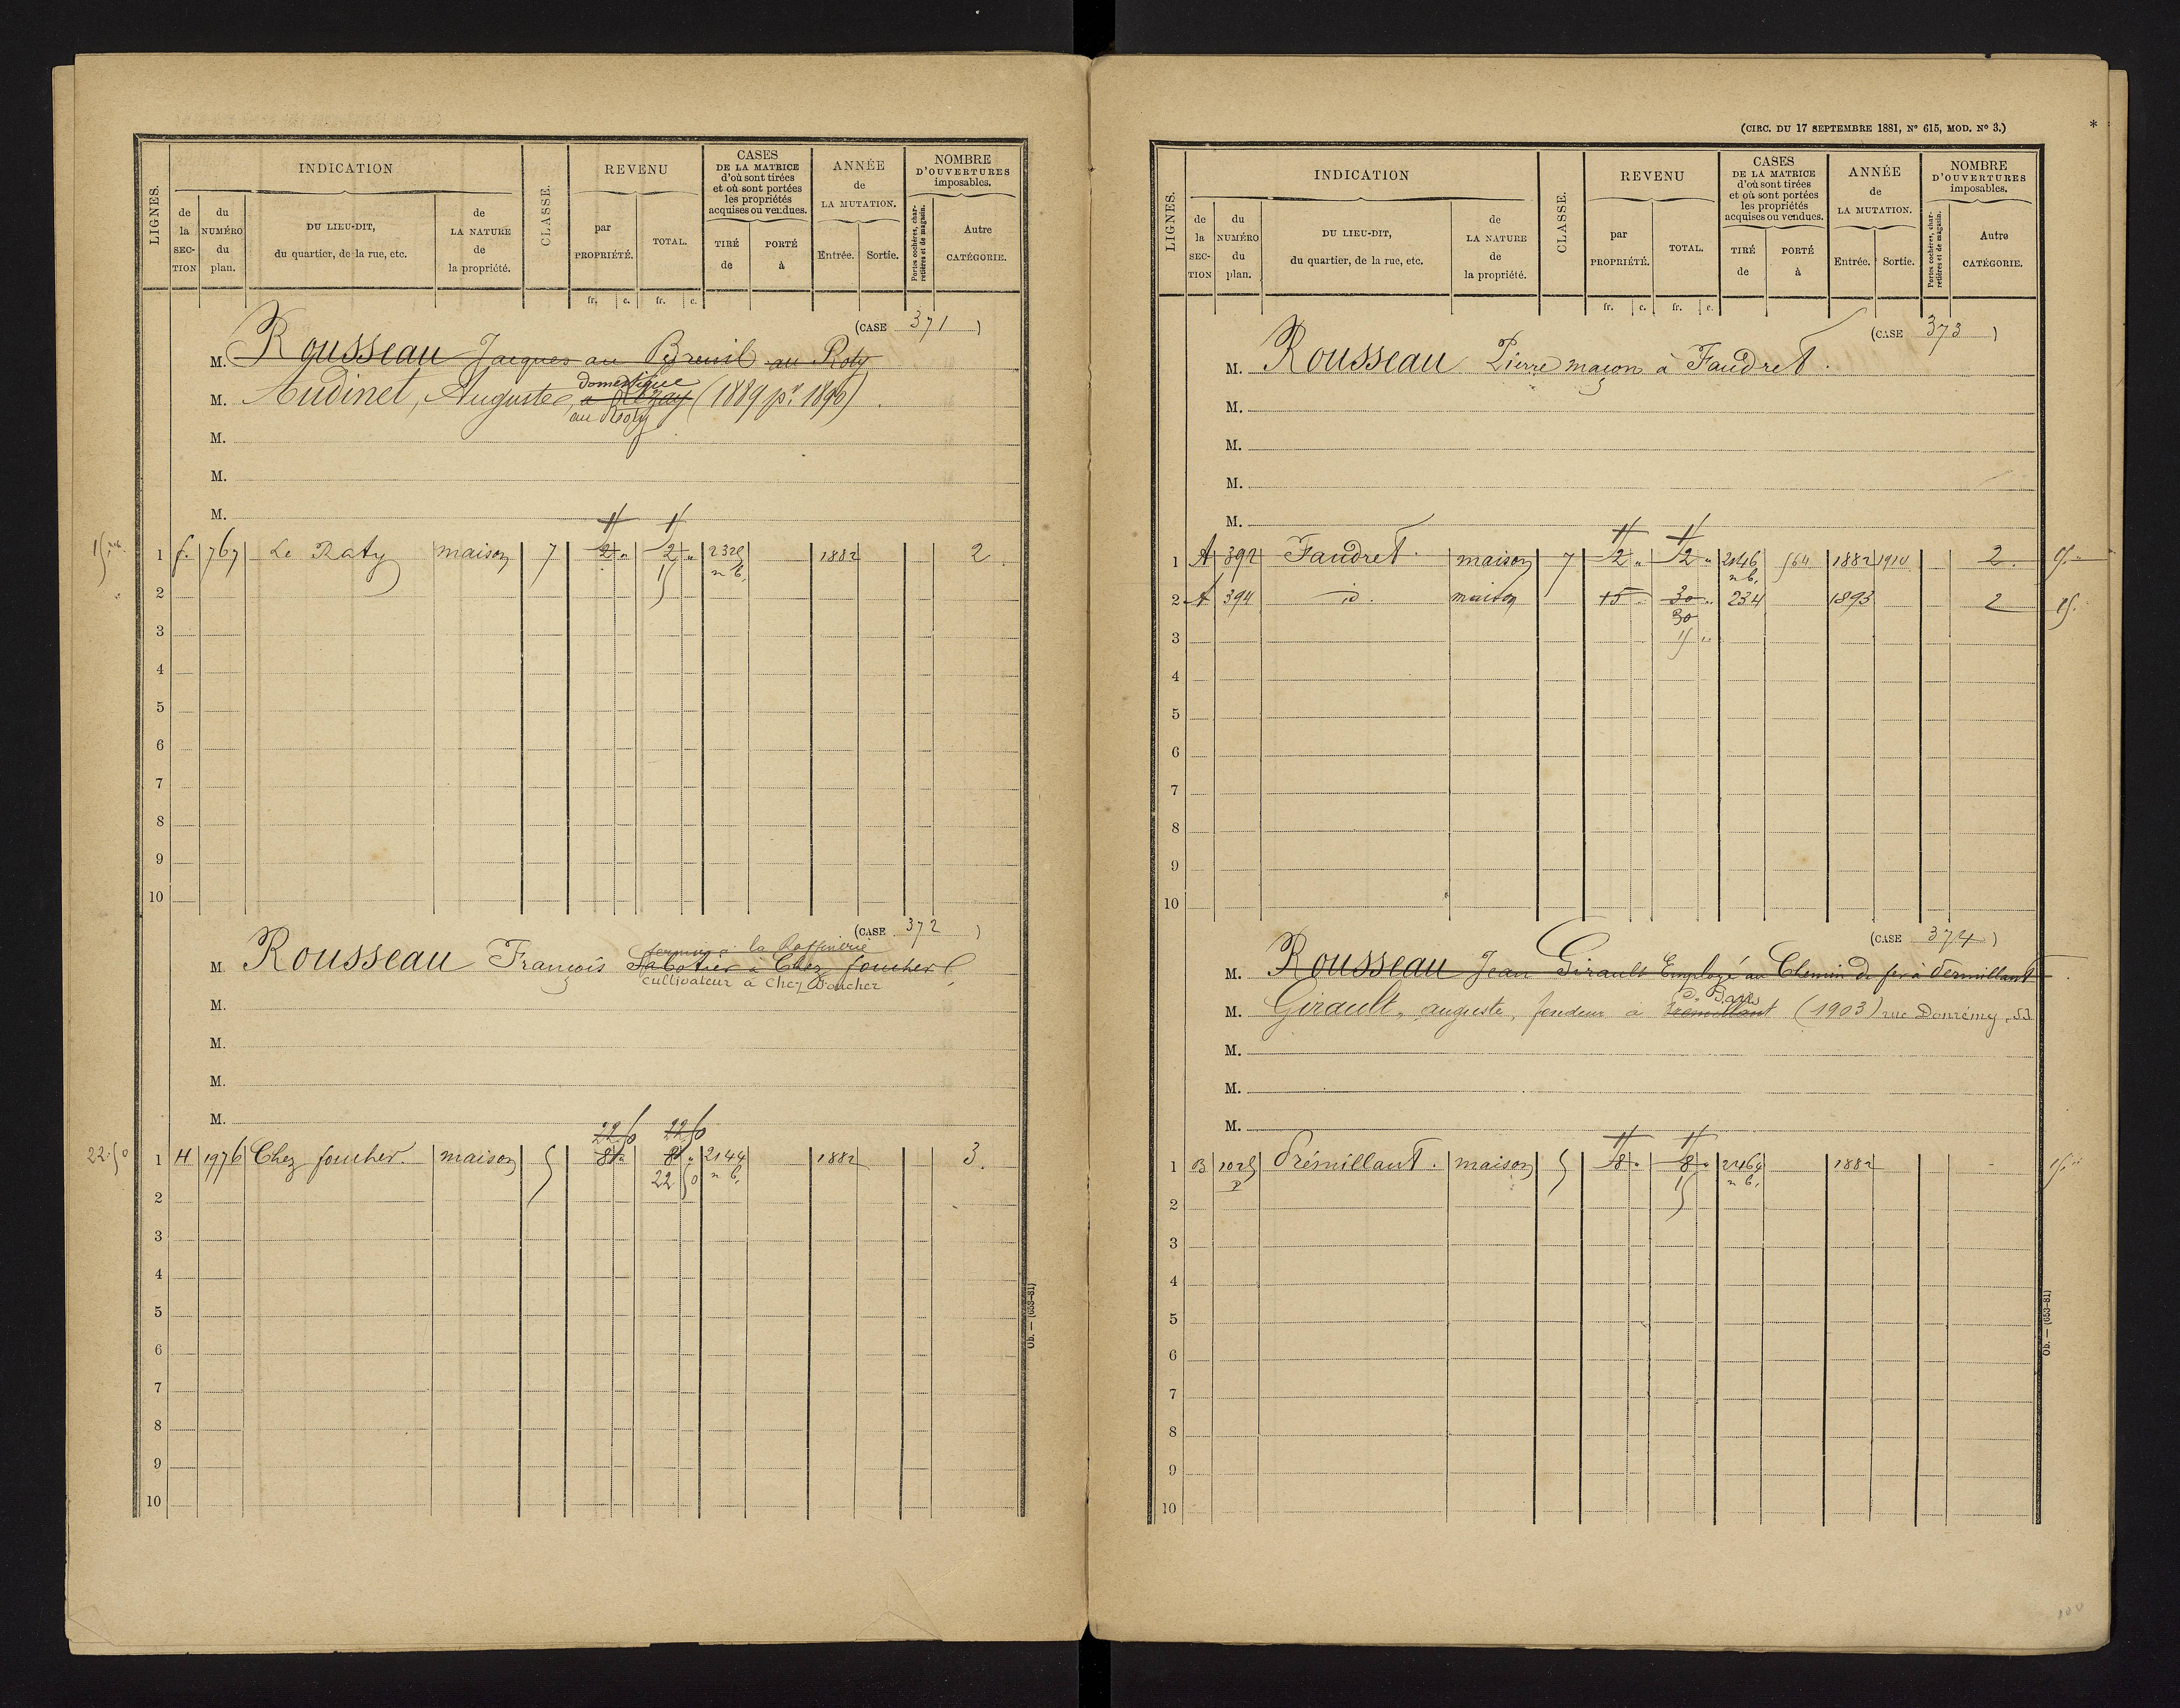 LIGNES.
INDICATION
de la SECTION
du NUMÉRO du plan.
DU LIEU-DIT, du quartier, de la rue, etc.
de LA NATURE de la propriété.
CLASSE.
REVENU
par PROPRIÉTÉ.
TOTAL.
CASES DE LA MATRICE d'où sont tirées et où sont portées les propriétés acquises ou vendues.
TIRÉ de
PORTÉ à
ANNÉE de LA MUTATION.
Entrée.
Sortie.
NOMBRE D'OUVERTURES imposables.
Portes cochères, charretières et de magasin.
Autre CATÉGORIE.
fr. c. fr. c.
(CASE 371)
M. Rousseau Jacques au Breuil au Roty
domestique
M. Audinet, Auguste, (1889 pr. 1890)
au Roty
M.
M.
M.
1 f. 767 Le Raty maison 7 2 " 2 " 2328 1882 2
15 n b.
2
3
4
5
6
7
8
9
10
(CASE 372)
fermier à la Raffinerie
M. Rousseau François Sabotier à Chez foucher
cultivateur à Chez Foucher
M.
M.
M.
M.
22.50 22.50
22.50 1 H 1976 Chez foucher. maison 5 2144 1882 3.
22 50 n b.
2
3
4
5
6
7
8
9
10
Ob. — (653-81)
(CIRC. DU 17 SEPTEMBRE 1881, N° 615, MOD. N° 3.)
*
LIGNES.
INDICATION
de la SECTION
du NUMÉRO du plan.
DU LIEU-DIT, du quartier, de la rue, etc.
de LA NATURE de la propriété.
CLASSE.
REVENU
par PROPRIÉTÉ.
TOTAL.
CASES DE LA MATRICE d'où sont tirées et où sont portées les propriétés acquises ou vendues.
TIRÉ de
PORTÉ à
ANNÉE de LA MUTATION.
Entrée.
Sortie.
NOMBRE D'OUVERTURES imposables.
Portes cochères, charretières et de magasin.
Autre CATÉGORIE.
fr. c. fr. c.
(CASE 373)
M. Rousseau Pierre maçon à Faudret.
M.
M.
M.
M.
1 A 392 Faudret. maison 7 2 " 2 " 2146 564 1882 1910 2.
n b.
2 A 394 id. maison 15 30 " 234 1893 2 15.
30
3 15 "
4
5
6
7
8
9
10
(CASE 374)
M. Rousseau Jean Girault Employé au Chemin de fer à Prémillant
Paris
M. Girault, auguste, fondeur à Prémillant (1903) rue Donrémy, 53
M.
M.
M.
1 B 1025 Prémillant. maison 5 8 " 8 " 2464 1882
p 15 n b.
2
3
4
5
6
7
8
9
10
Ob. — (653-81)
100